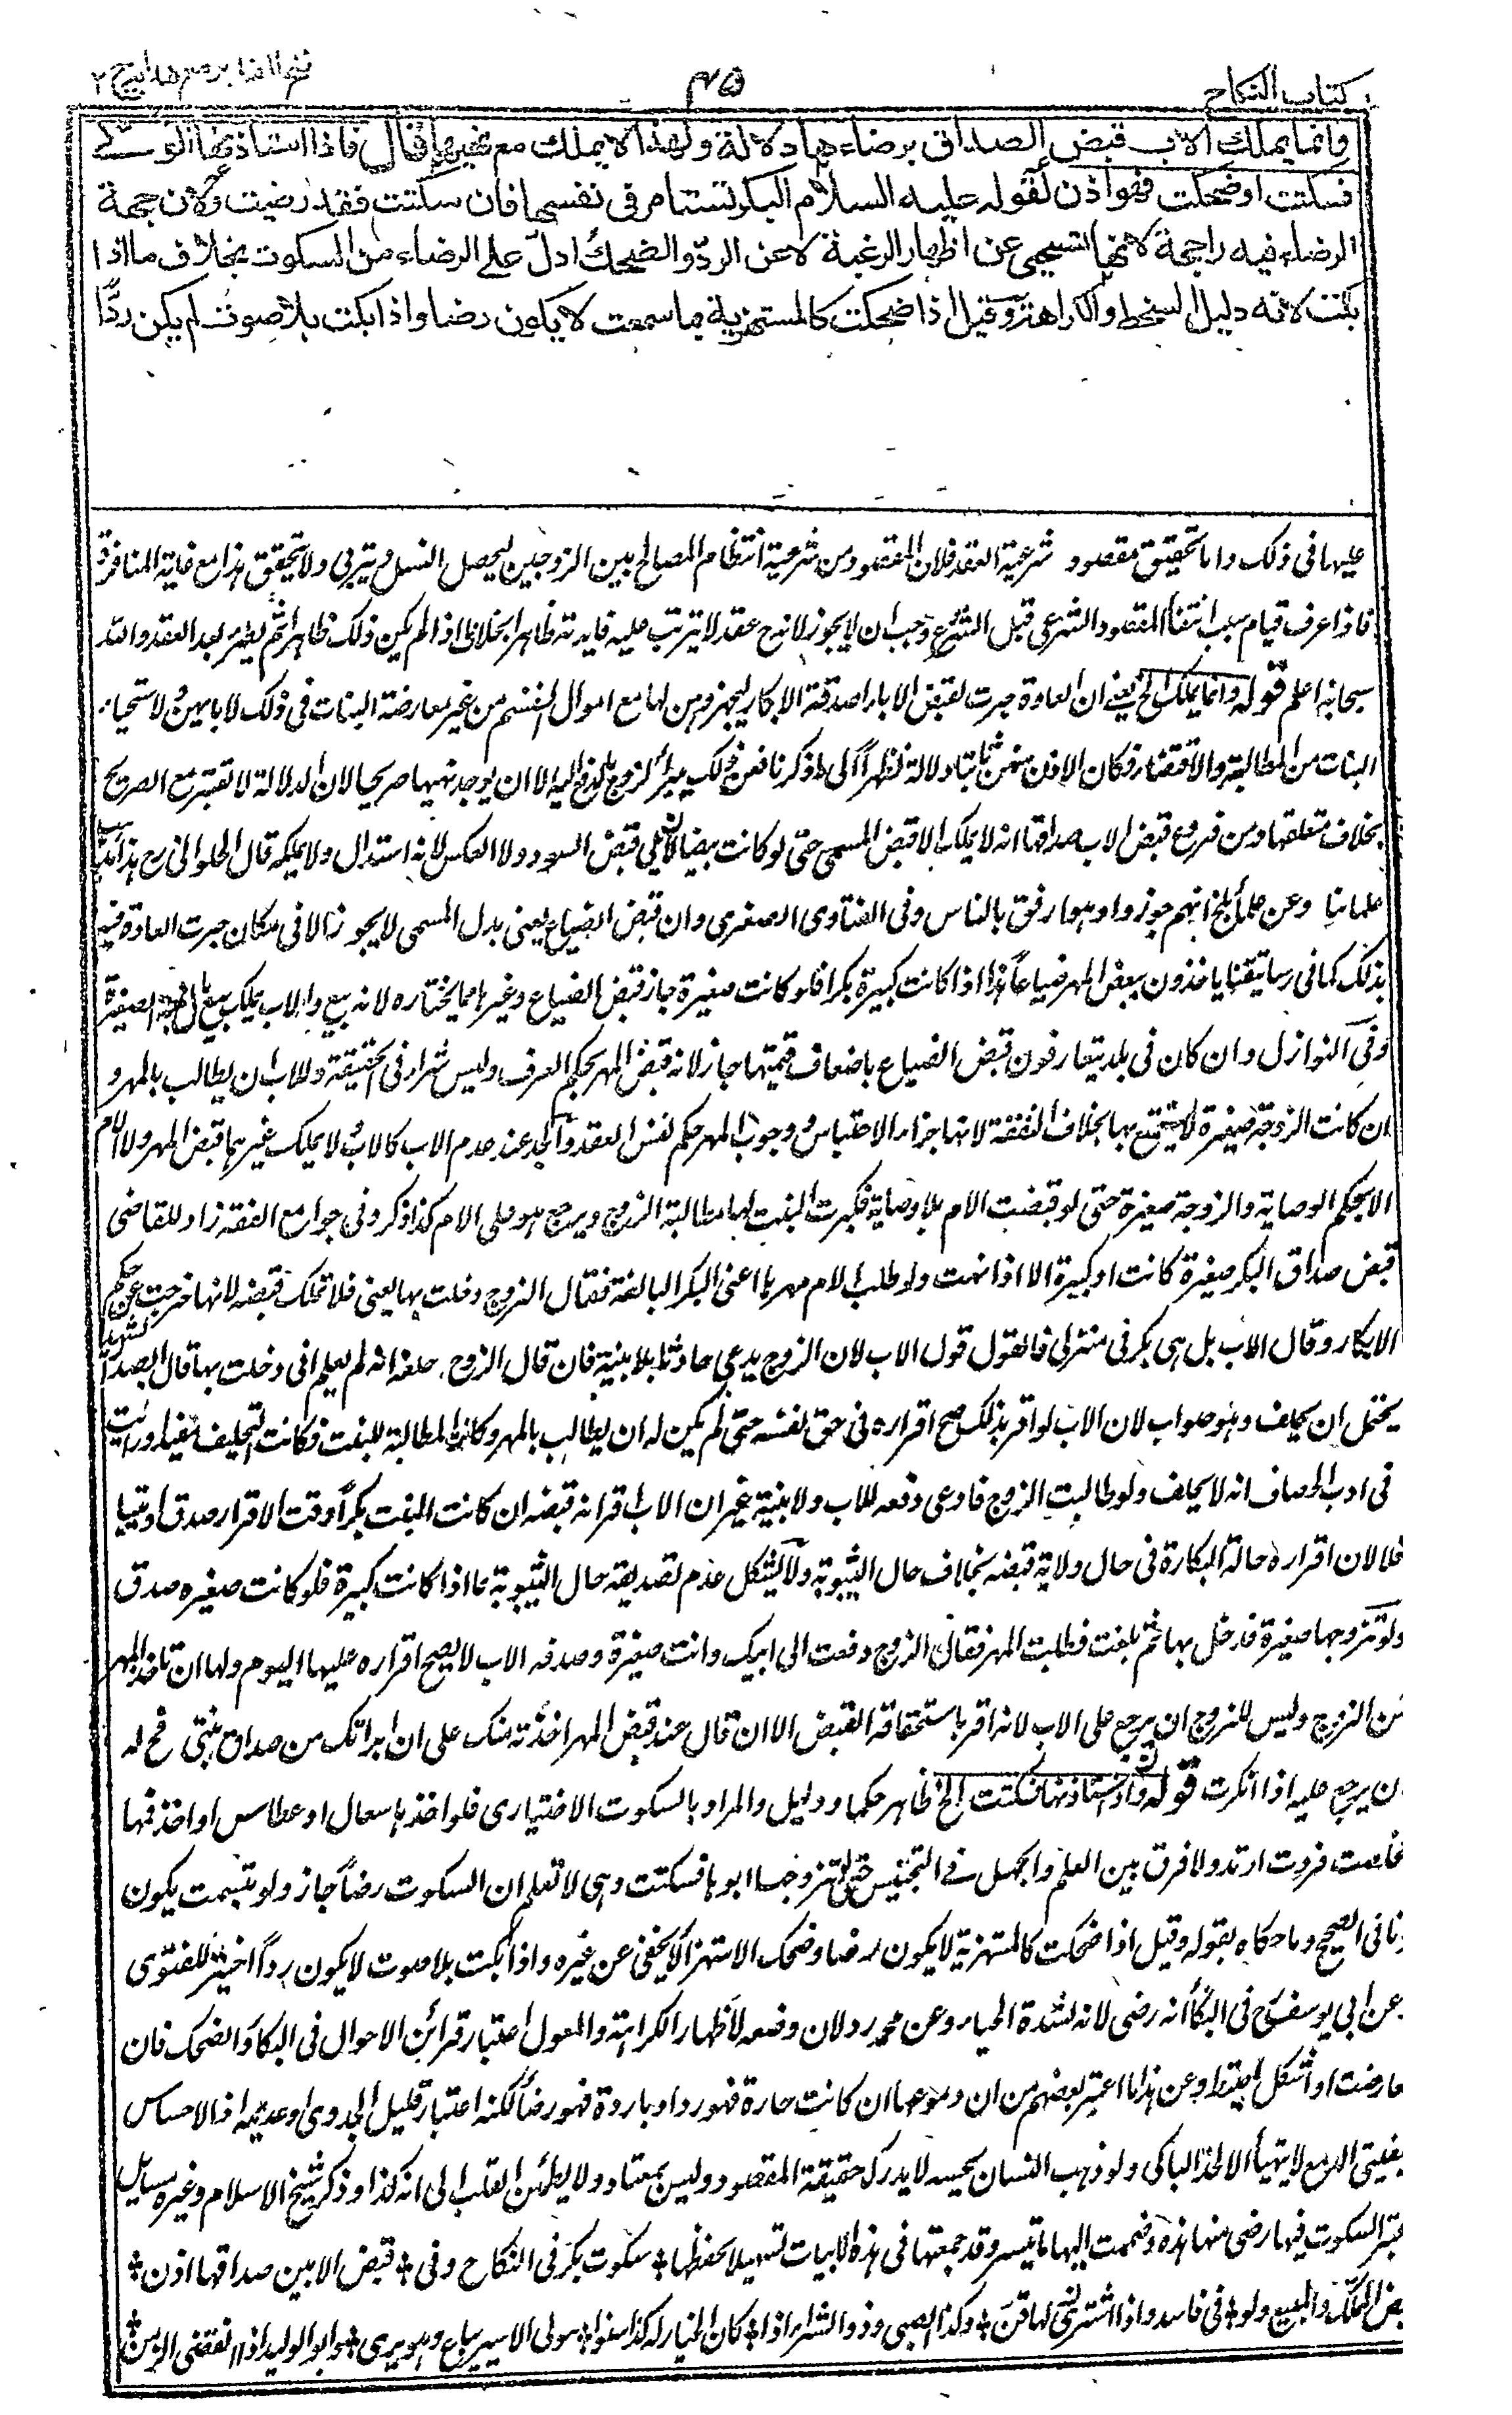 كتاب النكاح
فتح القدير مع هدايه ج ٢
وانما يملك الاب قبض الصداق برضاءها دلالة ولهذا لا يملك مع نهيها قال فاذا استاذنها الولي
فسكتت او ضحكت فهو اذن لقوله عليه السلام البكر تستامر في نفسها فان سكتت فقد رضيت ولان جهة
الرضاء فيه راجحة لانها تستحيي عن اظهار الرغبة لا عن الرد والضحك ادل على الرضاء من السكوت بخلاف ما اذا
بكت لانه دليل السخط والكراهة وقيل اذا ضحكت كالمستهزية بما سمعت لا يكون رضا واذا بكت بلا صوت لم يكن ردا
عليها في ذلك واما تحقيق مقصود شرعية العقد فلان المقصود من شرعية انتظام المصالح بين الزوجين ليحصل النسل ويتربى ولا يتحقق هذا مع غاية المنافرة
فاذا عرف قيام سبب انتفاء المقصود الشرعي قبل الشرع وجب ان لا يجوز لانه ح عقد لا يترتب عليه فايدته ظاهرا بخلاف ما اذا لم يكن ذلك ظاهرا ثم يطرء بعد العقد والله
سبحانه اعلم قوله وانما يملك الخ يعني ان العادة جرت لقبض الاباء اصدقة الابكار ليجهزوهن بها مع اموال انفسهم من غير معارضة البنات في ذلك لابايهن ولاستحياء
البنات من المطالبة والاقتضاء فكان الاذن منهن ثابتا دلالة نظرا الى ما ذكرنا فعن ذلك يبرأ الزوج بالدفع اليه الا ان يوجد نهيها صريحا لان الدلالة لا تعتبر مع الصريح
بخلاف متعلقها ومن فروع قبض الاب صداقها انه لا يملك الا قبض المسمى حتى لو كانت بيضا لا يلي قبض السود ولا العكس لانه استبدال ولا يملكه قال الحلواني رح هذا مذهب
علمائنا وعن علماء بلخ انهم جوزوا وهو ارفق بالناس وفي الفتاوى الصغرى وان قبض الضياع يعني بدل المسمى لا يجوز الا في مكان جرت العادة فيه
بذلك كما في رساتيقنا ياخذون ببعض المهر ضياعا هذا اذا كانت كبيرة بكرا فلو كانت صغيرة جاز قبض الضياع وغيرها مما يختاره لانه بيع والاب يملك بيع مال بنته الصغيرة
وفي النوازل وان كان في بلد يتعارفون قبض الضياع باضعاف قيمتها جاز لانه قبض المهر بحكم العرف وليس شراء في الحقيقة وللاب ان يطالب بالمهر و
ان كانت الزوجة صغيرة لا يستمتع بها بخلاف النفقة لانها جزاء الاحتباس ووجوب المهر حكم نفس العقد والجد عند عدم الاب كالاب ولا يملك غيرهما قبض المهر ولا الام
الا بحكم الوصاية والزوجة صغيرة حتى لو قبضت الام بلا وصاية فكبرت البنت لها مطالبة الزوج ويرجع هو على الام كذا ذكر وفي جوامع الفقه زاد للقاضي
قبض صداق البكر صغيرة كانت او كبيرة الا اذا نهت ولو طلب الام مهرها اعنى البكر البالغة فقال الزوج دخلت بها يعني فلا تملك قبضه لانها خرجت عن حكم
الابكار وقال الاب بل هي بكر في منزلي فالقول قول الاب لان الزوج يدعي حادثا بلا بينة فان قال الزوج حلفه انه لم يعلم اني دخلت بها قال الصدر الشهيد
يحتمل ان يحلف وهو صواب لان الاب لو اقر بذلك صح اقراره في حق نفسه حتى لم يكن له ان يطالب بالمهر وكانت المطالبة للبنت فكانت التحليف مفيدا ورأيت
في ادب الخصاف انه لا يحلف ولو طالبت الزوج فادعى دفعه للاب ولا بينة غير ان الاب اقر انه قبضه ان كانت البنت بكرا وقت الاقرار صدق او ثيبا
فلا لان اقراره حالة البكارة في حال ولاية قبضه بخلاف حال الثيوبة ولا يشكل عدم تصديقه حال الثيوبة ما اذا كانت كبيرة فلو كانت صغيره صدق
ولو تزوجها صغيرة فدخل بها ثم بلغت فطلبت المهر فقال الزوج دفعت الى ابيك وانت صغيرة وصدقه الاب لا يصح اقراره عليها اليوم ولها ان تاخذ المهر
من الزوج وليس للزوج ان يرجع على الاب لانه اقر باستحقاقه القبض الا ان قال عند قبض المهر اخذته منك على ان ابرأتك من صداق بنتي فح له
ان يرجع عليه اذا انكرت قوله واذا استاذنها فسكتت الخ ظاهر حكما ودليل والمراد بالسكوت الاختياري فلو اخذها سعال او عطاس او اخذ فمها
فخلصت فردت ارتد ولا فرق بين العلم والجهل في التجنيس حتى لو تزوجها ابوها فسكتت وهي لا تعلم ان السكوت رضا جاز ولو تبسمت يكون
اذنا في الصحيح وما حكاه بقوله وقيل اذا ضحكت كالمستهزية لا يكون رضا وضحك الاستهزاء لا يخفى عن غيره واذا بكت بلا صوت لا يكون ردا اختير للفتوى
وعن ابي يوسف رح في البكاء انه رضى لانه لشدة الحياء وعن محمد رد لان وضعه لاظهار الكراهة والمعول اعتبار قرائن الاحوال في البكاء والضحك فان
تعارضت او اشكل احتيط وعن هذا ما اعتبر بعضهم من ان دموعها ان كانت حارة فهو رد او باردة فهو رضا لكنه اعتبار قليل الجدوى او عديمه اذ الاحساس
بكيفيتي الدمع لا يتهيأ الا لخد الباكي ولو ذهب انسان يحسه لا يدرك حقيقة المقصود وليس بمعتاد ولا يطمئن القلب الى انه كذا وذكر شيخ الاسلام وغيره مسايل
يعتبر السكوت فيها رضى منها هذه وضممت اليها ما تيسر وقد جمعتها في هذه الابيات تسهيلا لحفظها * سكوت بكر في النكاح وفي * قبض الابين صداقها اذن *
قبض المملك والمبيع ولو * في فاسد واذا اشترى قن * وكذا الصبي وذو الشراء اذا * كان الخيار له كذا سنوا * مولى الاسير يباع وهو يرى * وابو الوليد اذا انقضى الزمن *